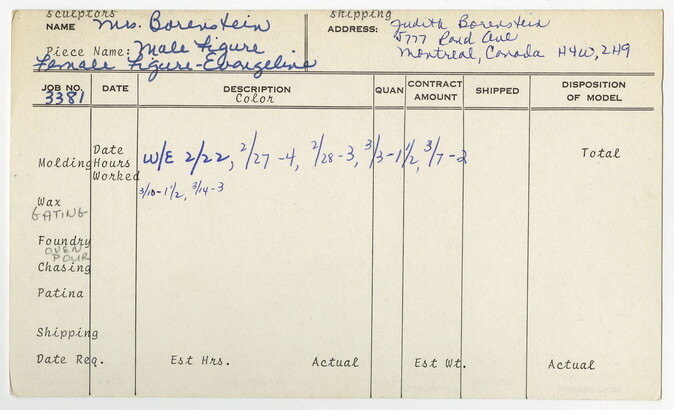 Sculptors Shipping
NAME Mrs. Borenstein ADDRESS: Judith Borenstein
Piece Name: Male Figure 5777 Rand Ave
Female Figure-Evangeline Montreal, Canada H4W, 2H9
JOB NO. DATE DESCRIPTION QUAN CONTRACT AMOUNT SHIPPED DISPOSITION OF MODEL
3381 Color
Molding Date Hours Worked W/E 2/22, 2/27-4, 2/28-3, 3/3-1 1/2, 3/7-2 Total
3/10-1 1/2, 3/14-3
Wax
GATING
Foundry
OVEN
POUR
Chasing
Patina
Shipping
Date Req. Est Hrs. Actual Est Wt. Actual